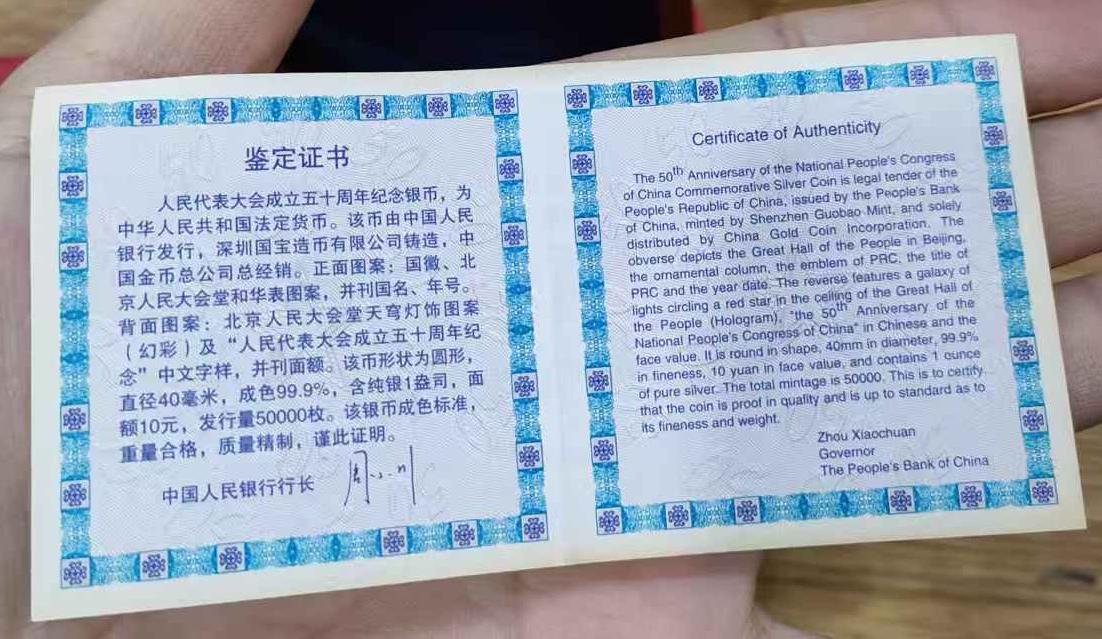 鉴定证书
人民代表大会成立五十周年纪念银币，为
中华人民共和国法定货币。该币由中国人民
银行发行，深圳国宝造币有限公司铸造，中
国金币总公司总经销。正面图案：国徽、北
京人民大会堂和华表图案，并刊国名、年号。
背面图案：北京人民大会堂天穹灯饰图案
（幻彩）及“人民代表大会成立五十周年纪
念”中文字样，并刊面额。该币形状为圆形，
直径40毫米，成色99.9%，含纯银1盎司，面
额10元，发行量50000枚。该银币成色标准，
重量合格，质量精制，谨此证明。
中国人民银行行长 周小川
Certificate of Authenticity
The 50th Anniversary of the National People's Congress
of China Commemorative Silver Coin is legal tender of the
People's Republic of China, issued by the People's Bank
of China, minted by Shenzhen Guobao Mint, and solely
distributed by China Gold Coin Incorporation. The
obverse depicts the Great Hall of the People in Beijing,
the ornamental column, the emblem of PRC, the title of
PRC and the year date. The reverse features a galaxy of
lights circling a red star in the ceiling of the Great Hall of
the People (Hologram), "the 50th Anniversary of the
National People's Congress of China" in Chinese and the
face value. It is round in shape, 40mm in diameter, 99.9%
in fineness, 10 yuan in face value, and contains 1 ounce
of pure silver. The total mintage is 50000. This is to certify
that the coin is proof in quality and is up to standard as to
its fineness and weight.
Zhou Xiaochuan
Governor
The People's Bank of China